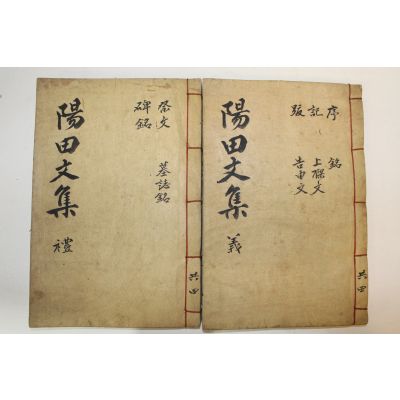 陽田文集
義
序
記
跋
銘
上樑文
告由文
共四
陽田文集
禮
祭文
碑銘
墓誌銘
共四